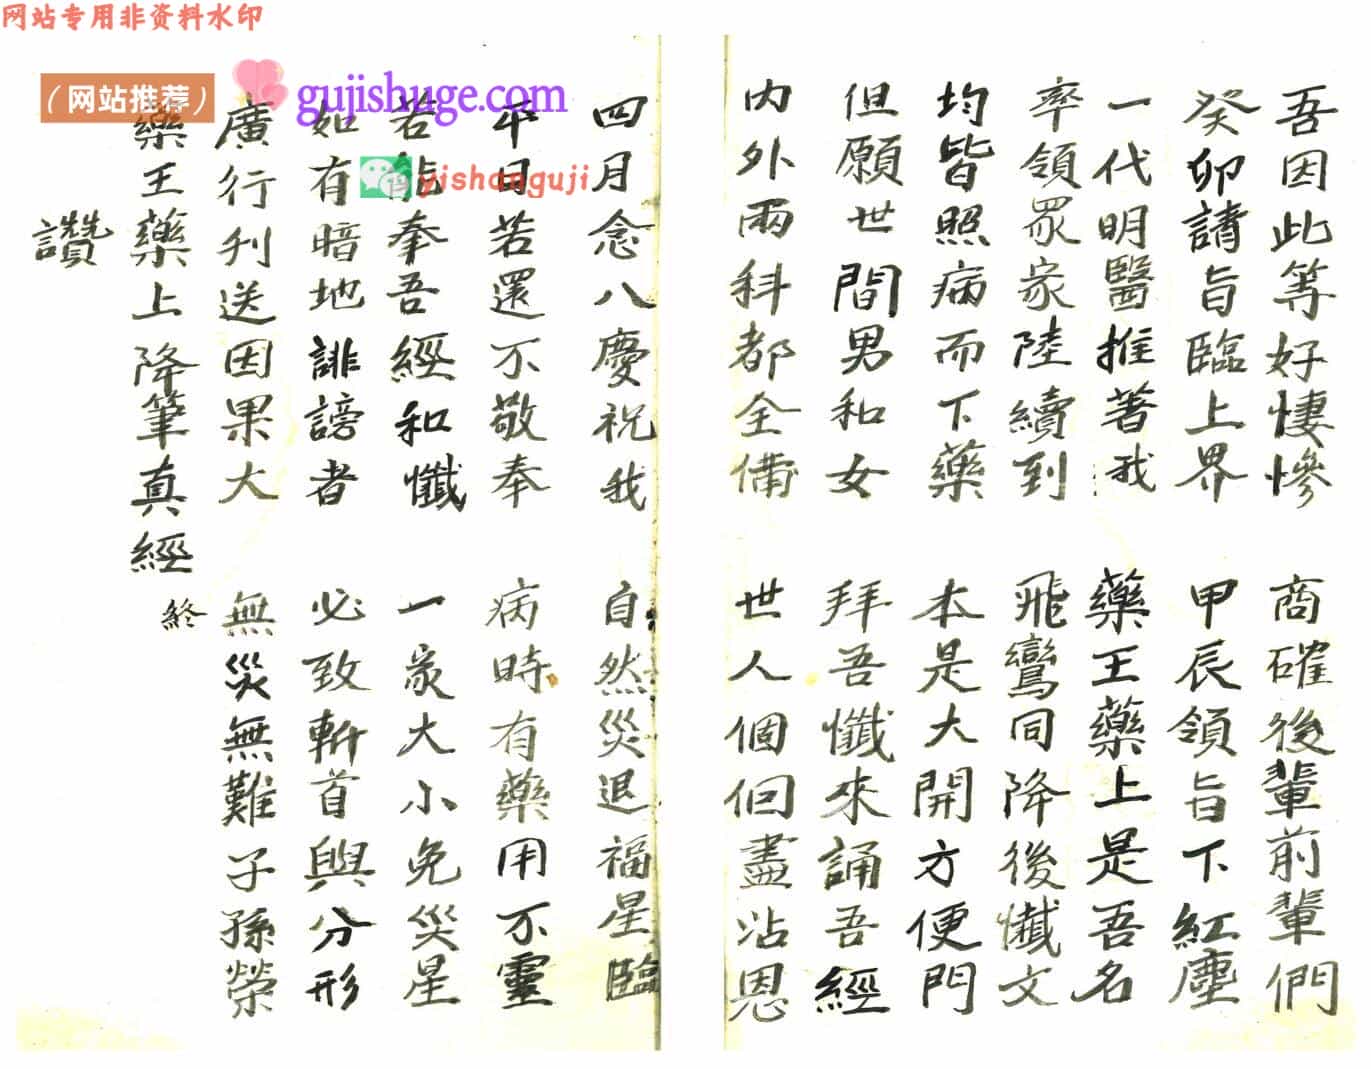 网站专用非资料水印
（网站推荐）
gujishuge.com
yishanguji
吾因此等好悽慘 商確後輩前輩們
癸卯請旨臨上界 甲辰領旨下紅塵
一代明醫推著我 藥王藥上是吾名
率領眾家陸續到 飛鸞同降後懺文
均皆照病而下藥 本是大開方便門
但願世間男和女 拜吾懺來誦吾經
內外兩科都全備 世人個個盡沾恩
四月念八慶祝我 自然災退福星臨
平日若還不敬奉 病時有藥用不靈
若能奉吾經和懺 一家大小免災星
如有暗地誹謗者 必致斬首與分形
廣行刊送因果大 無災無難子孫榮
藥王藥上降筆真經 終
讚